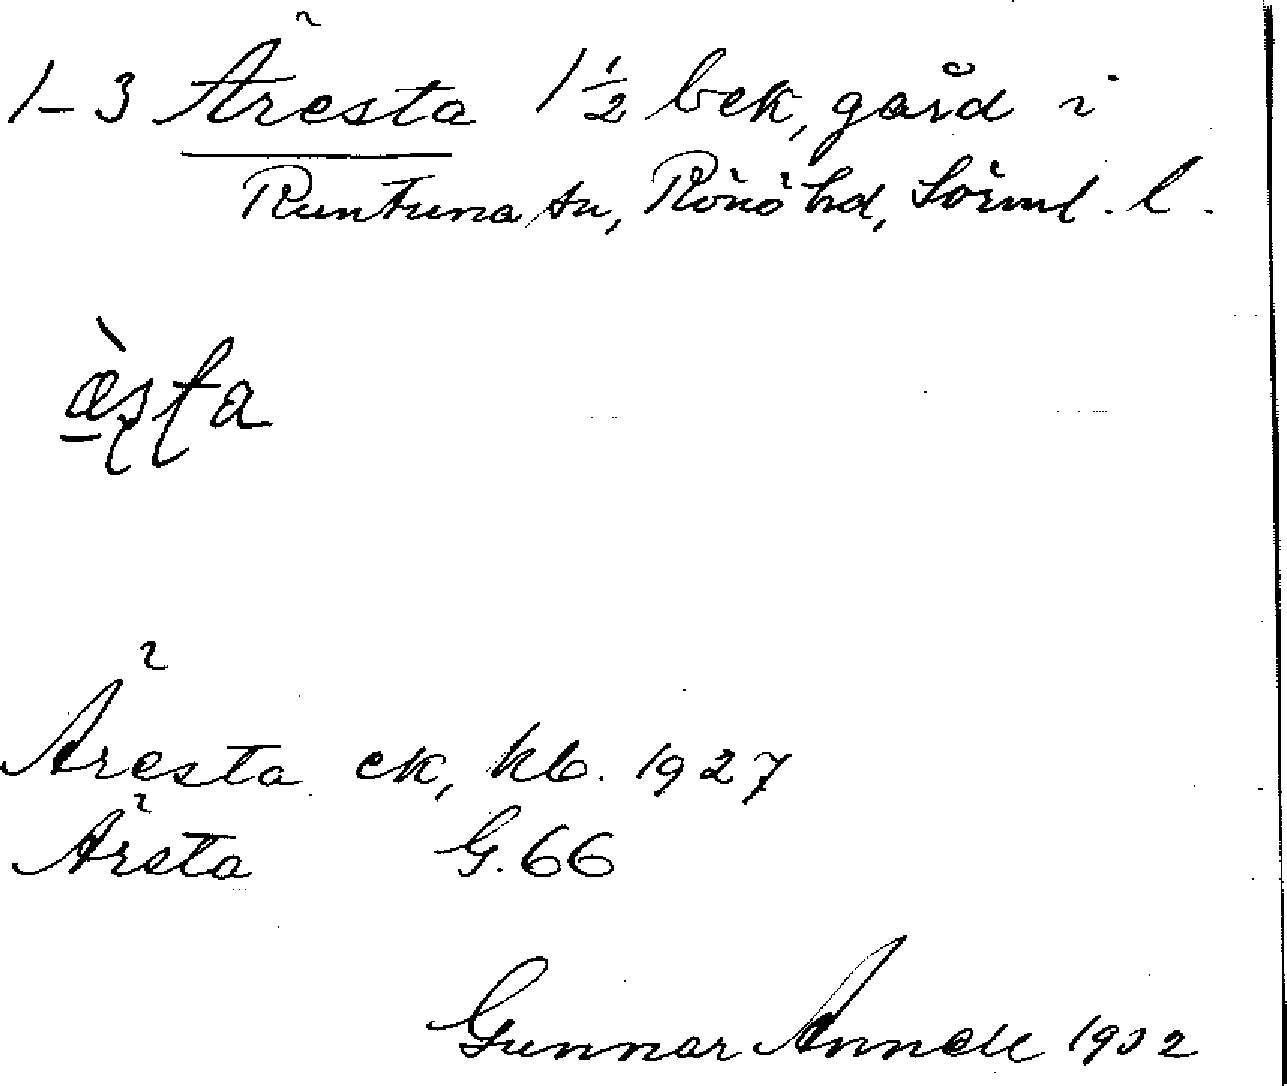 1-3 Äresta 1 1/2 bek, gård i
Runtuna sn, Rönö hd, Sörml. l.
Äresta ek, kb. 1927
Ärsta G. 66
Gunnar Annell 1932